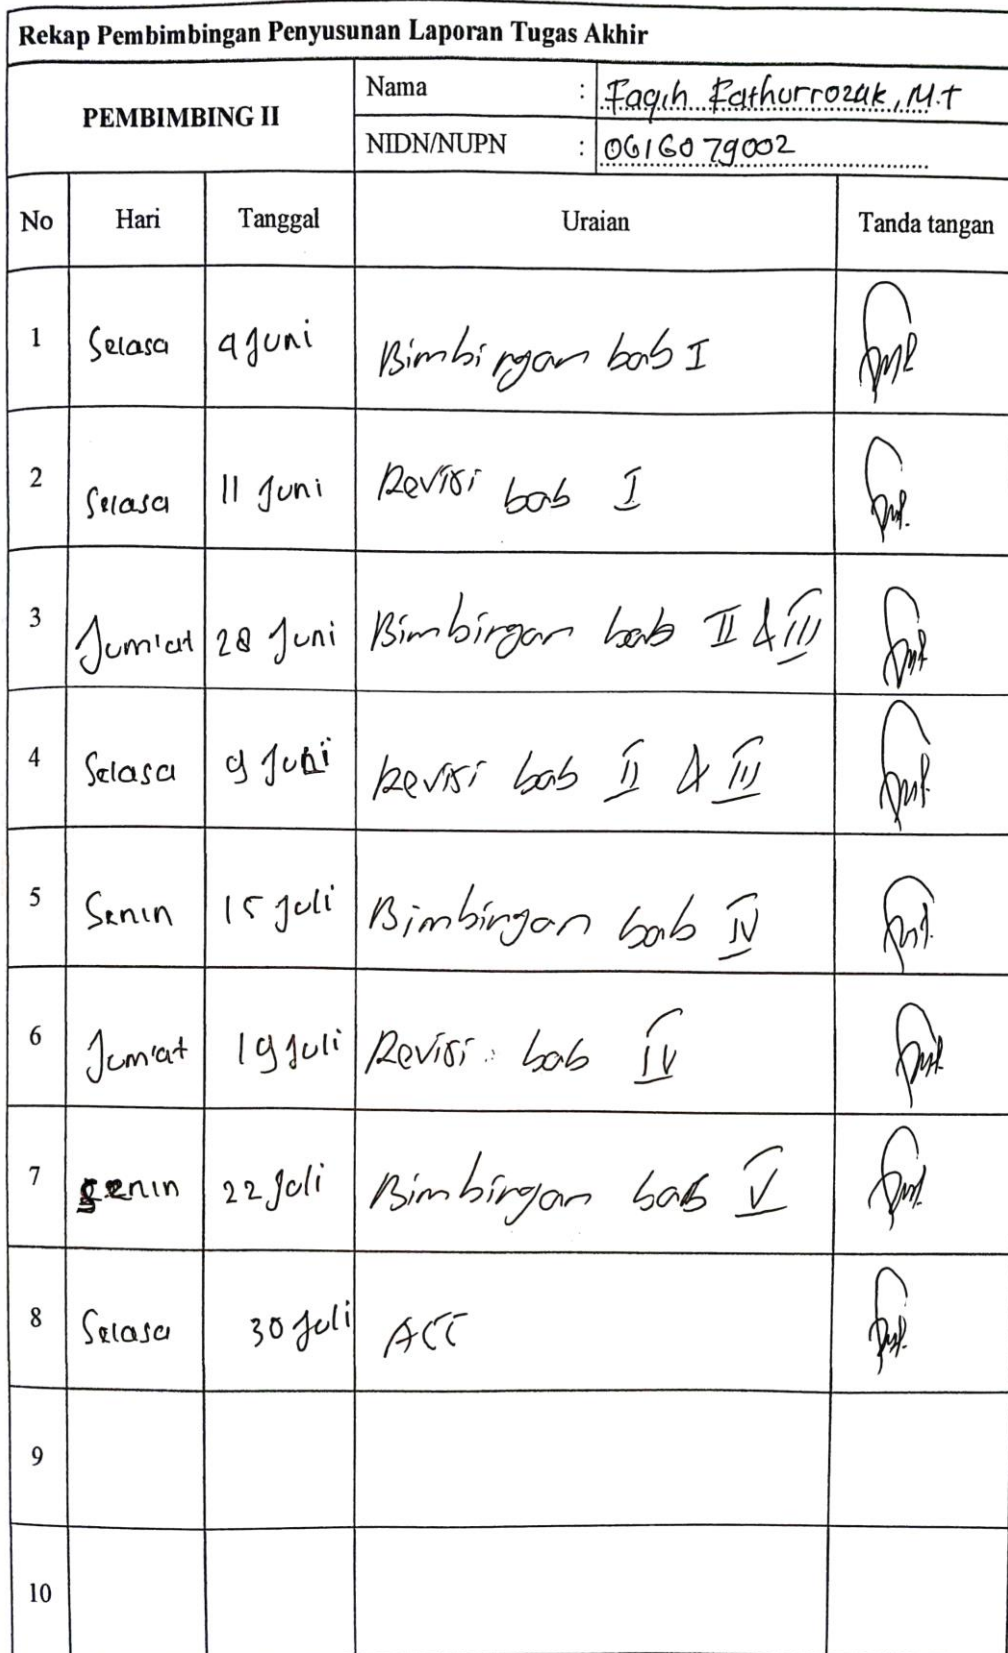 Rekap Pembimbingan Penyusunan Laporan Tugas Akhir
PEMBIMBING II
Nama : Faqih Fathurrozak, M.T
NIDN/NUPN : 0616079002
No Hari Tanggal Uraian Tanda tangan
1 Selasa 4 Juni Bimbingan bab I
2 Selasa 11 Juni Revisi bab I
3 Jum'at 28 Juni Bimbingan bab II & III
4 Selasa 9 Juli Revisi bab II & III
5 Senin 15 Juli Bimbingan bab IV
6 Jum'at 19 Juli Revisi bab IV
7 Senin 22 Juli Bimbingan bab V
8 Selasa 30 Juli ACC
9
10